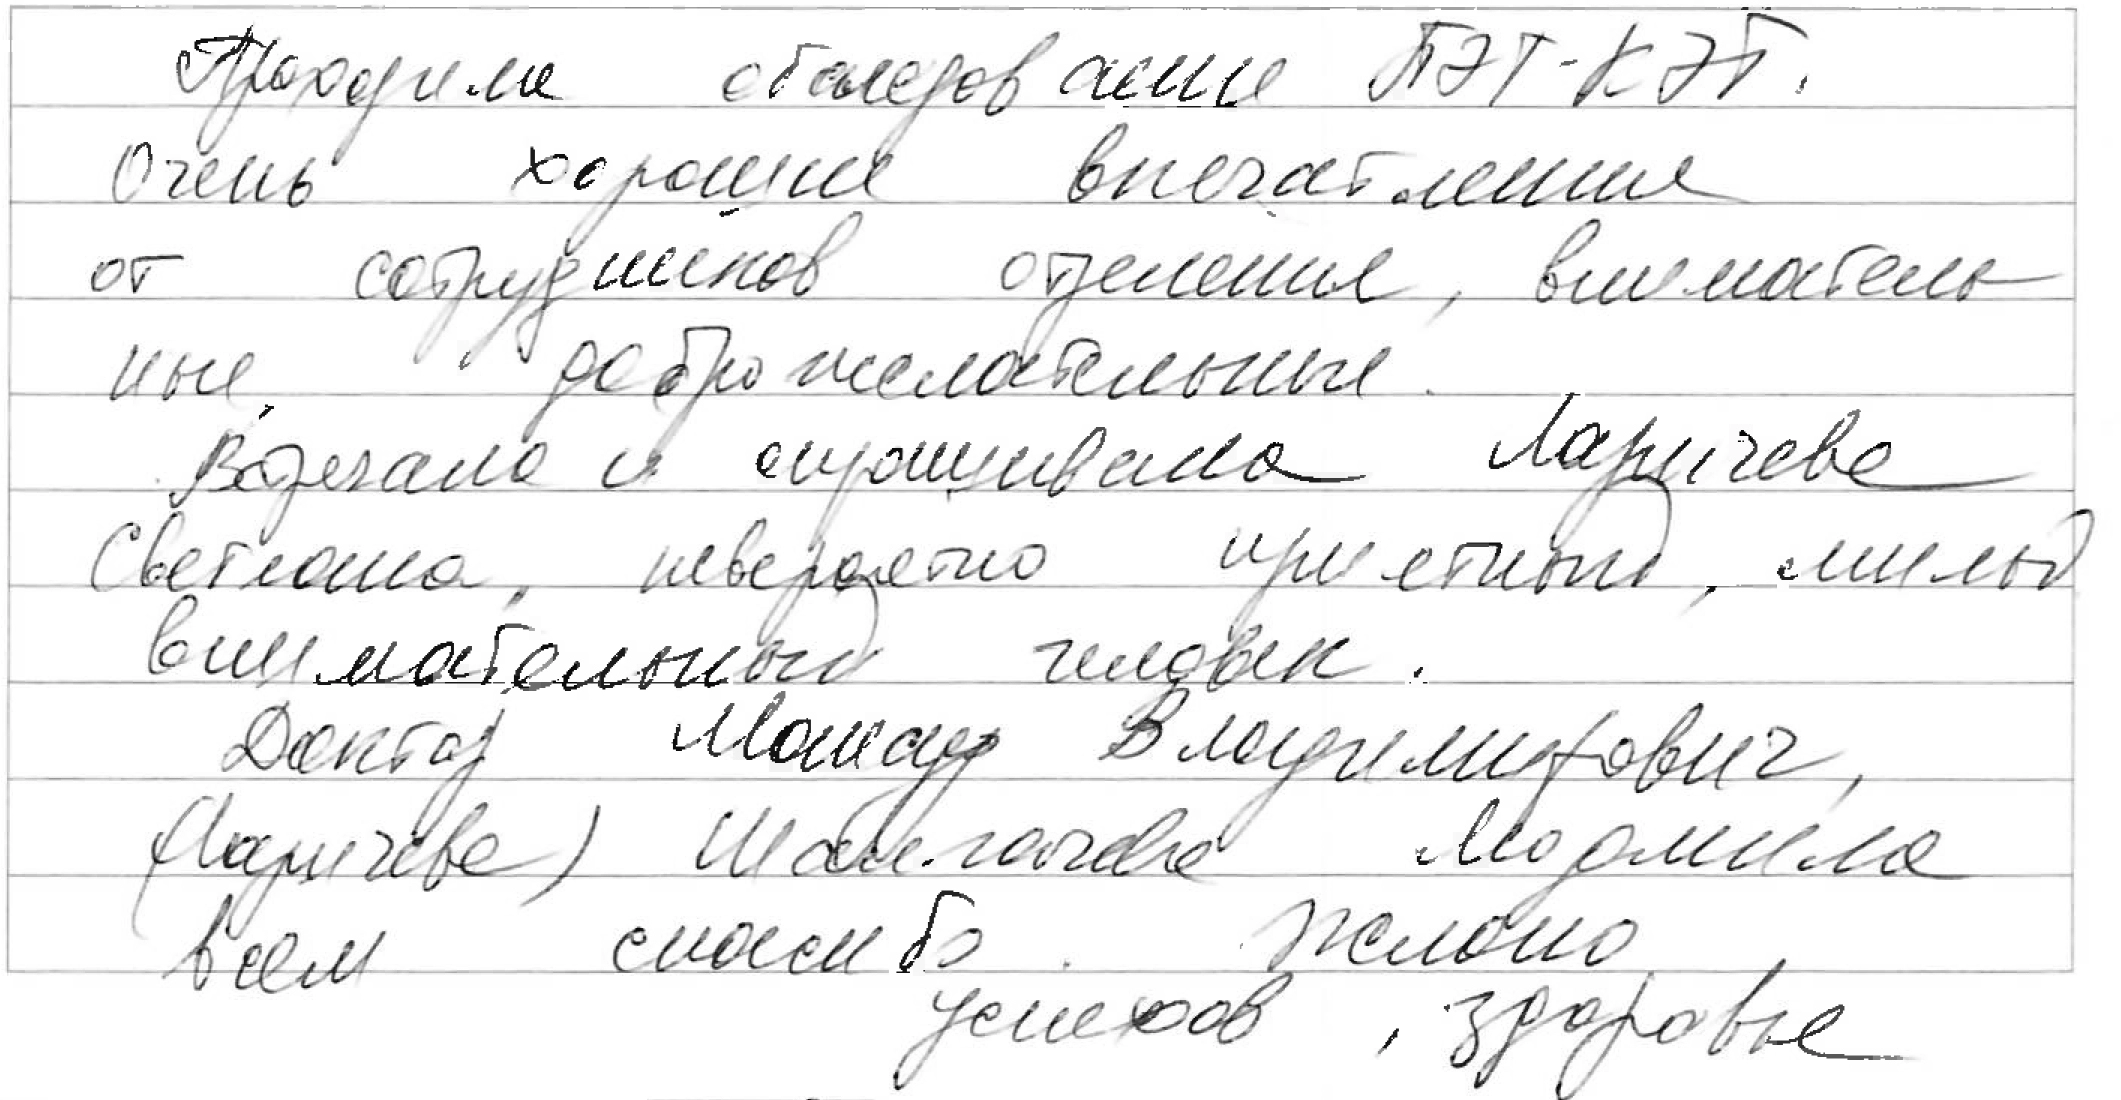 Проходила обследование ПЭТ-КЭТ.
Очень хорошие впечатления
от сотрудников отделения, вниматель
ные, доброжелательные.
Встречала и опрашивала Ларичева
Светлана, невероятно приятный, милый
внимательный человек.
Доктор Владимирович,
(Ларичева) Людмила
Всем спасибо. Желаю
успехов, здоровья